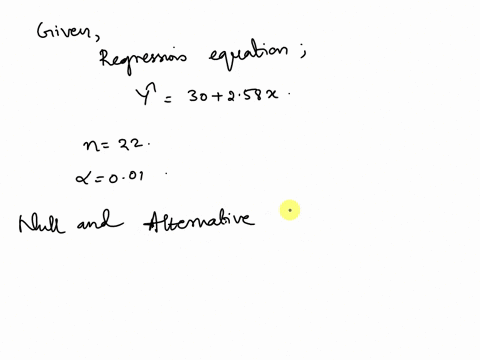 Given,
Regression equation ;
Ŷ = 30 + 2.58x .
n = 22 .
α = 0.01 .
Null and Alternative